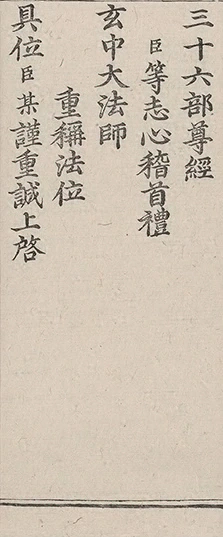 三十六部尊經
臣等志心稽首禮
玄中大法師
重稱法位
具位臣某謹重誠上啓